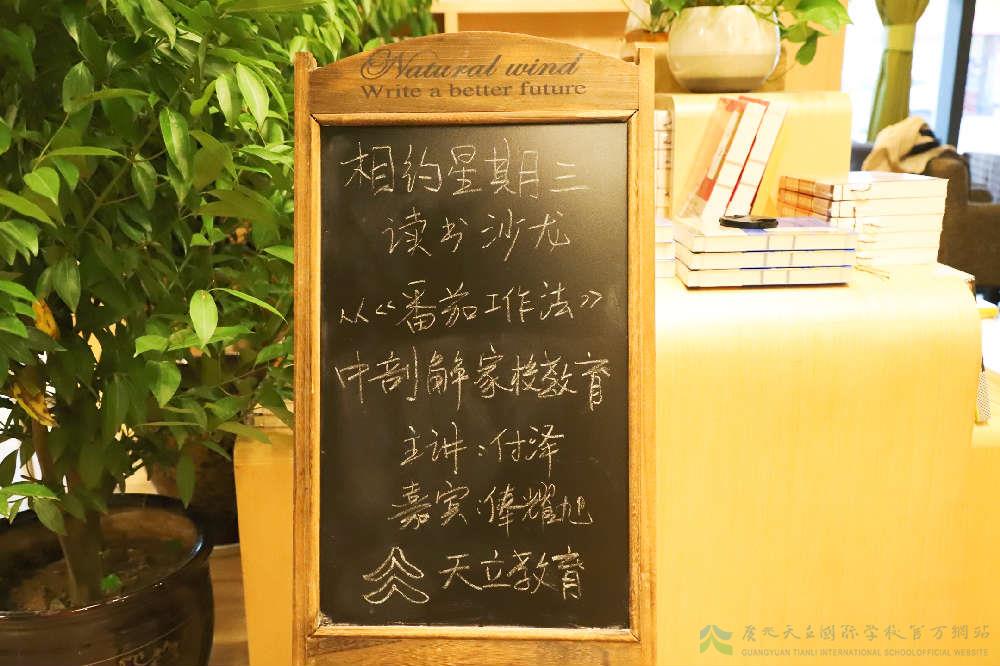 Natural wind
Write a better future
相约星期三
读书沙龙
从《番茄工作法》
中剖解家校教育
主讲:付泽
嘉宾:俸耀旭
天立教育
广元天立國际学校官方網站
GUANGYUAN TIANLI INTERNATIONAL SCHOOLOFFICIAL WEBSITE